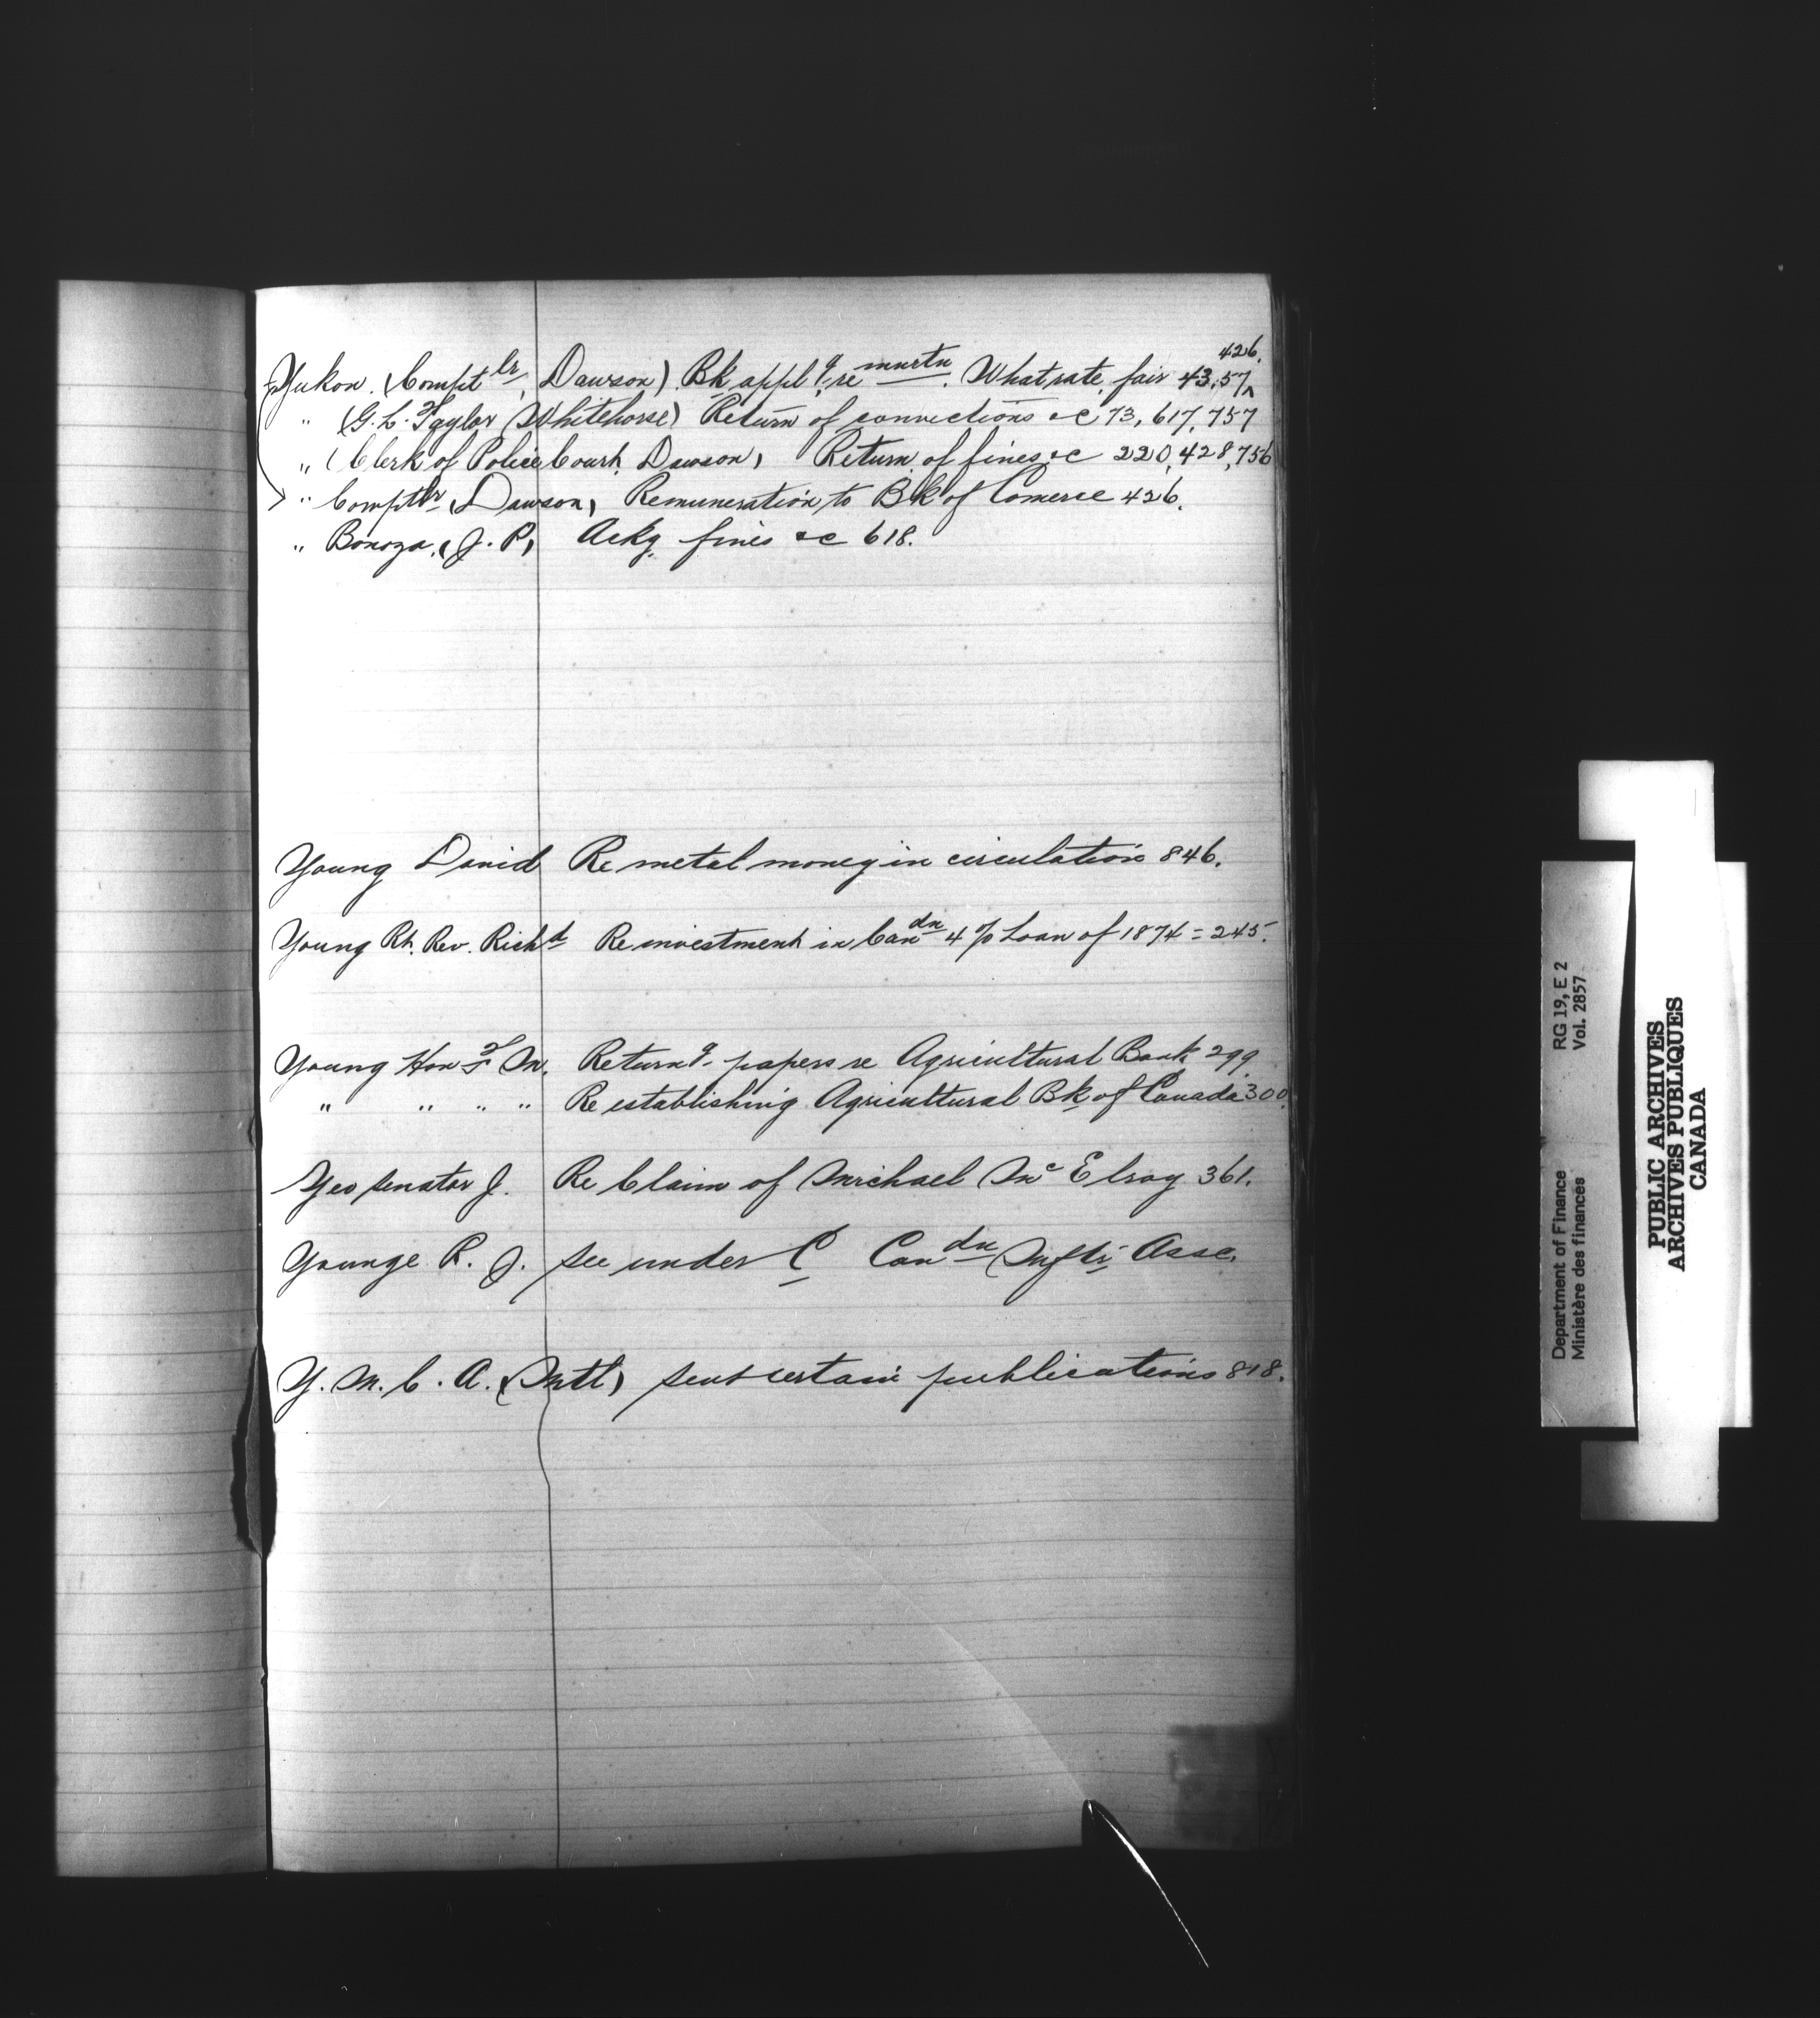 426.
Yukon. (Comptlr, Dawson) Bk applg re mnrtn. What rate fair 43,57
" (G. L. Taylor Whitehorse) Return of convictions &c 73, 617, 757
" (Clerk of Police Court, Dawson) Return of fines &c 220, 428, 756
" Comptlr (Dawson) Remuneration to Bk of Comerce 426.
" Bonoza, (J. P) Ackg fines &c 618.
Young David Re metal money in circulation 846.
Young Rt. Rev. Richd Re investment in Candn 4% Loan of 1874 = 245.
Young Hon F M. Returng papers re Agricultural Bank 299
" " " " Re establishing Agricultural Bk of Canada 300.
Yeo Senator J. Re Claim of Michael McElroy 361.
Younge R. J. See under C Candn Mftr Assc.
Y. M. C. A. (Mtl) sent certain publications 818.
Department of Finance RG 19, E 2
Ministère des finances Vol. 2857
PUBLIC ARCHIVES
ARCHIVES PUBLIQUES
CANADA